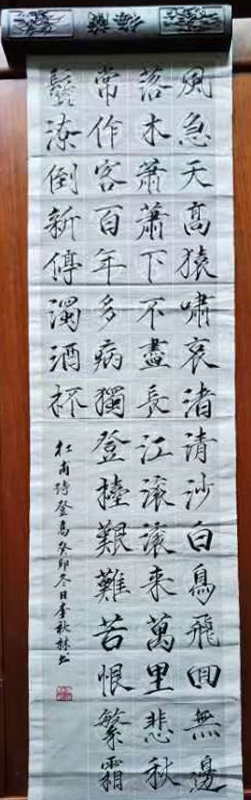 風急天髙猿嘯哀渚清沙白鳥飛回無邊
落木蕭蕭下不盡長江滾滾來萬里悲秋
常作客百年多病獨登臺艱難苦恨繁霜
鬢潦倒新停濁酒杯
杜甫詩登高癸卯冬日李秋林书